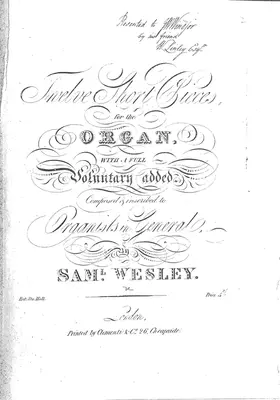 Presented to JW Windsor
by his friend
W. Linley Esqr.
Twelve Short Pieces,
for the
ORGAN,
WITH A FULL
Voluntary added.
Composed & inscribed to
Organists in General,
by
SAML. WESLEY.
Ent. Sta. Hall.
Price
London,
Printed by Clementi & Co. 26, Cheapside.